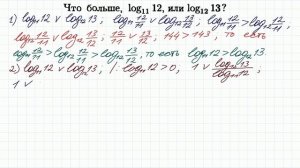 Что больше, log₁₁ 12, или log₁₂ 13?
1) log₁₁12 ∨ log₁₂13; log₁₁ 12/11 ∨ log₁₂ 13/12; log₁₁ 12/11 > log₁₂ 12/11,
log₁₂ 12/11 ∨ log₁₂ 13/12; 12/11 ∨ 13/12; 144 > 143, то есть
log₁₁ 12/11 > log₁₂ 12/11 > log₁₂ 13/12, то есть log₁₁12 > log₁₂13.
2) log₁₁12 ∨ log₁₂13, /: log₁₁12 > 0, 1 ∨ log₁₂13/log₁₁12,
1 ∨